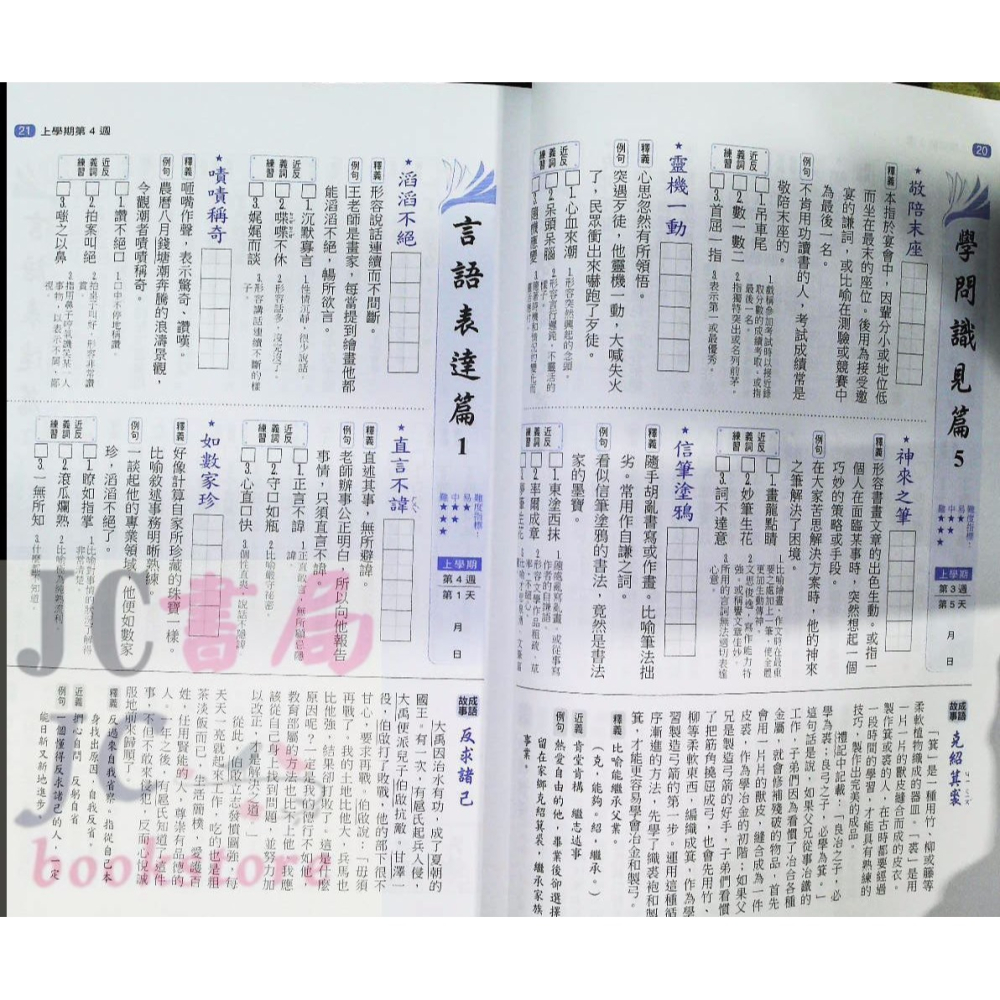 20
學問識見篇 5
難度指標：
易★
中★★
難★★★
上學期
第3週
第5天
月 日
★敬陪末座
釋義 本指於宴會中，因輩分小或地位低
而坐在最末的座位。後用為接受邀
宴的謙詞，或比喻在測驗或競賽中
為最後一名。
例句 不肯用功讀書的人，考試成績常是
敬陪末座的。
近反義詞練習
□1.吊車尾
□2.數一數二
2.指獨特突出或名列前茅。
□3.首屈一指
3.表示第一或最優秀。
★靈機一動
釋義 心思忽然有所領悟。
例句 突遇歹徒，他靈機一動，大喊失火
了，民眾衝出來嚇跑了歹徒。
近反義詞練習
□1.心血來潮
1.形容突然興起的念頭。
□2.呆頭呆腦
□3.隨機應變
★神來之筆
釋義 形容書畫文章的出色生動。或指一
個人在面臨某事時，突然想起一個
巧妙的策略或手段。
例句 在大家苦思解決方案時，他的神來
之筆解決了困境。
近反義詞練習
□1.畫龍點睛
□2.妙筆生花
□3.詞不達意
★信筆塗鴉
釋義 隨手胡亂書寫或作畫。比喻筆法拙
劣。常用作自謙之詞。
例句 看似信筆塗鴉的書法，竟然是書法
家的墨寶。
近反義詞練習
□1.東塗西抹
□2.率爾成章
成語故事 克紹箕裘
「箕」是一種用竹、柳或藤等
柔軟植物織成的器皿，「裘」是用
一片一片的獸皮縫合而成的皮衣。
製作箕或裘的人，在古時都要經過
一段時間的學習，才能具有熟練的
技巧，製作出完美的成品。
禮記中記載：「良冶之子，必
學為裘；良弓之子，必學為箕。」
這句話是說，如果父兄從事冶鐵的
工作，子弟們因為看慣了冶合各種
金屬，就會修補殘破的物品，首先
會用一片片的獸皮，縫合成為一件
皮裘，作為學冶金的初階；如果父
兄是製造弓箭的好手，子弟們看慣
了把筋角撓屈成弓，也會先用竹、
柳等柔軟東西，編織成箕，作為學
習製造弓箭的第一步。運用這種循
序漸進的方法，先學了織裘袍和製
箕，才能更容易學會冶金和製弓。
釋義 比喻能繼承父業。
（克，能夠。紹，繼承。）
近義 肯堂肯構、繼志述事
例句 熱愛自由的他，畢業後卻選擇
留在家鄉克紹箕裘，繼承家族
事業。
21 上學期第4週
言語表達篇 1
難度指標：
易★
中★★
難★★★
上學期
第4週
第1天
月 日
★滔滔不絕
釋義 形容說話連續而不間斷。
例句 王老師是畫家，每當提到繪畫他都
能滔滔不絕，暢所欲言。
近反義詞練習
□1.沉默寡言
1.性情沉靜，很少說話。
□2.喋喋不休
2.形容話多，沒完沒了。
□3.娓娓而談
3.形容講話連續不斷的樣
子。
★嘖嘖稱奇
釋義 咂嘴作聲，表示驚奇、讚嘆。
例句 農曆八月錢塘潮奔騰的浪濤景觀，
令觀潮者嘖嘖稱奇。
近反義詞練習
□1.讚不絕口
1.口中不停地稱讚。
□2.拍案叫絕
2.拍桌子叫好，形容非常讚
賞。
□3.嗤之以鼻
★直言不諱
釋義 直述其事，無所避諱。
例句 老師辦事公正明白，所以向他報告
事情，只須直言不諱。
近反義詞練習
□1.正言不諱
□2.守口如瓶
□3.心直口快
★如數家珍
釋義 好像計算自家所珍藏的珠寶一樣。
比喻敘述事務明晰熟練。
例句 一談起他的專業領域，他便如數家
珍，滔滔不絕了。
近反義詞練習
□1.瞭如指掌
□2.滾瓜爛熟
□3.一無所知
成語故事 反求諸己
大禹因治水有功，成了夏朝的
國王。有一次，有扈氏起兵入侵，
大禹便派兒子伯啟抗敵，甘澤一
役，伯啟打了敗戰。他的部下很不
甘心，要求再戰。伯啟說：「毋須
再戰了。我的土地比他大，兵馬也
比他強，結果卻打敗了。這是什麼
原因呢？一定是我的德行不如他，
教育部屬的方法也比不上他。我應
該從自己身上找到問題，並努力加
以改正，才是解決之道。」
從此，伯啟立志發憤圖強，每
天天一亮就起來工作，吃的也是粗
茶淡飯而已，生活簡樸，愛護百
姓，任用賢能的人，尊崇有品德的
人。一年之後，有扈氏知道了這件
事，不但不敢來侵犯，反而心悅誠
服地前來歸順了。
釋義 反過來自我省察。指從自己本
身找出原因，自我反省。
近義 捫心自問、反躬自省
例句 一個懂得反求諸己的人，一定
能日新又新地進步。
JC書局
books.ore